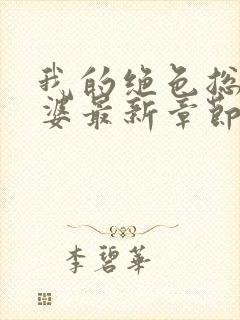 我的绝色总
婆最新章节
李碧華